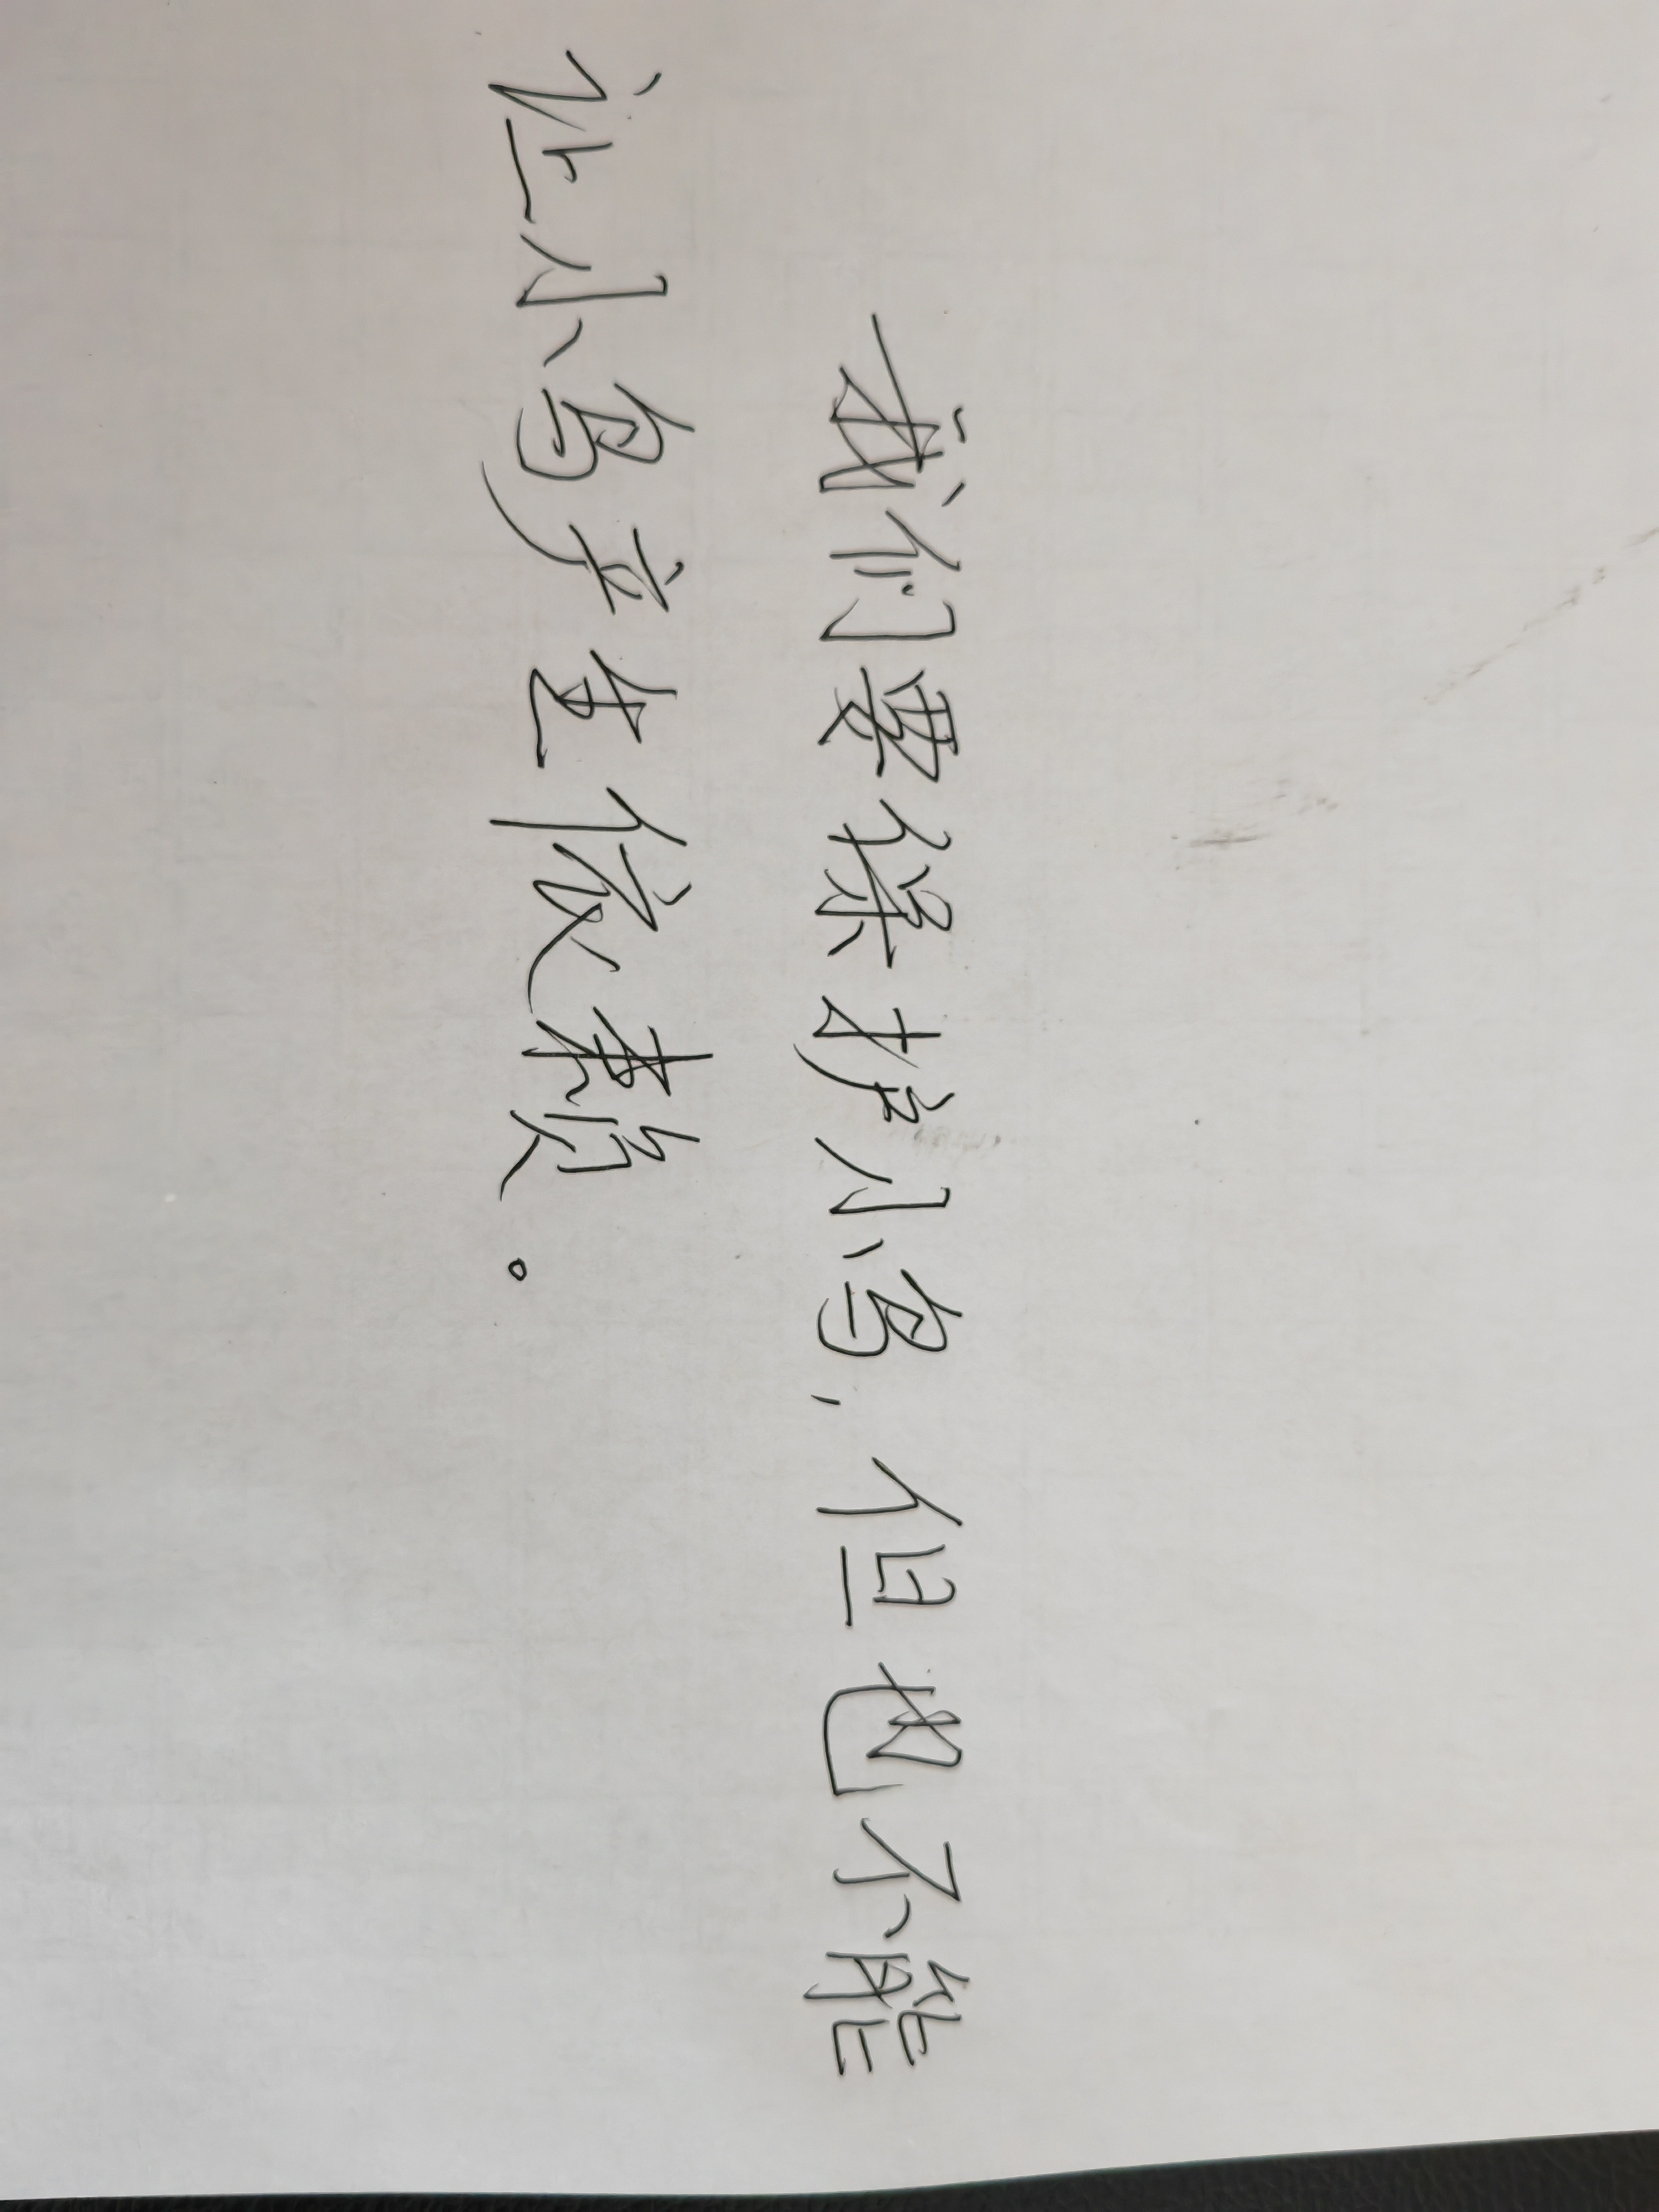 我们要保护小鸟,但也不能
让小鸟产生依赖。